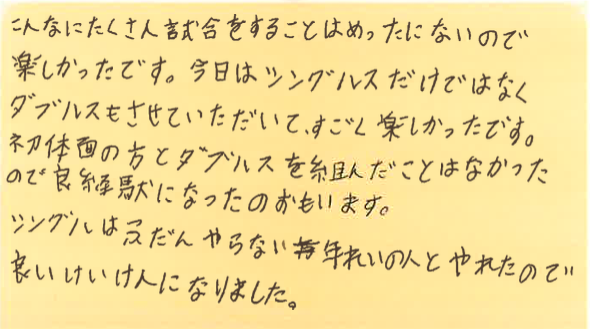 こんなにたくさん試合をすることはめったにないので
楽しかったです。今日はシングルスだけではなく
ダブルスもさせていただいて、すごく楽しかったです。
初体面の方とダブルスを組んだことはなかった
ので良経験になったのおもいます。
シングルはふだんやらない年れいの人とやれたので
良いけいけ人になりました。